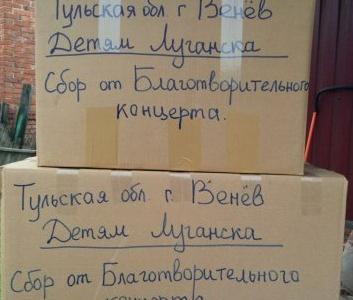 Тульская обл г Венёв
Детям Луганска
Сбор от Благотворительного
концерта.
Тульская обл. г. Венёв
Детям Луганска
Сбор от Благотворительного
концерта